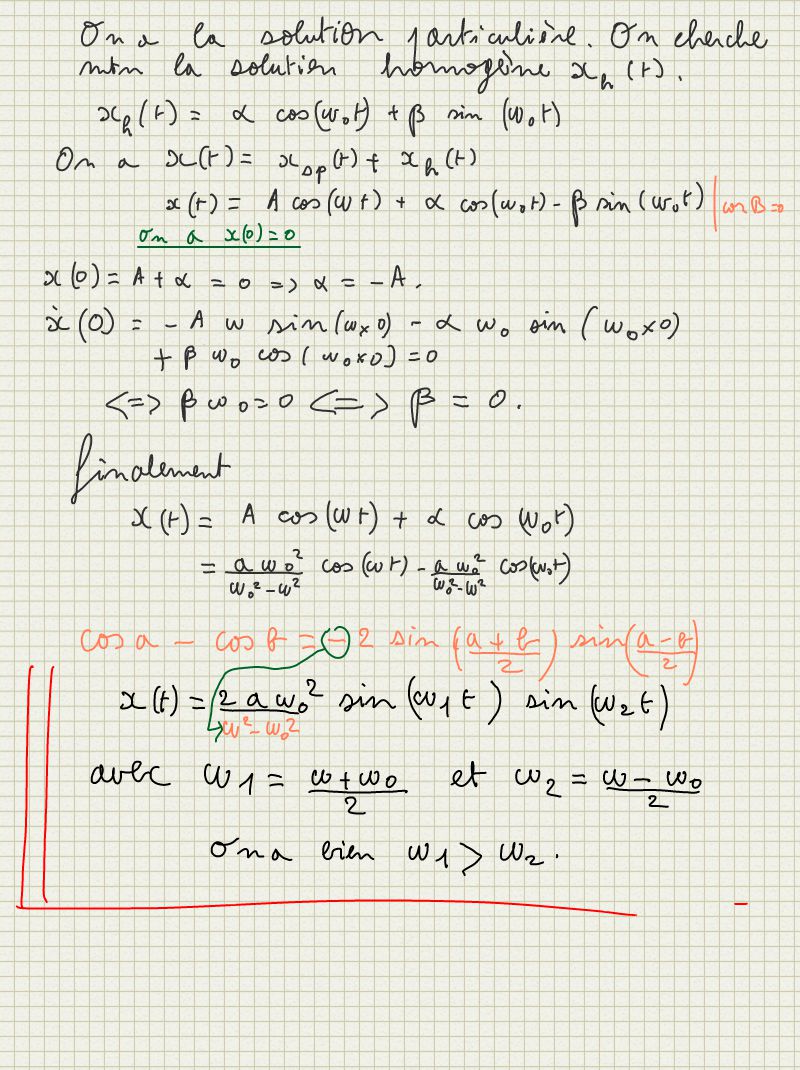 On a la solution particulière. On cherche
mtn la solution homogène x_h(t).
x_h(t) = α cos(ω₀t) + β sin (ω₀t)
On a x(t) = x_sp(t) + x_h(t)
x(t) = A cos(ωt) + α cos(ω₀t) - β sin(ω₀t) | car β = 0
on a x(0) = 0
x(0) = A + α = 0 => α = -A.
ẋ(0) = - A ω sin(ω×0) - α ω₀ sin (ω₀×0)
+ β ω₀ cos(ω₀×0) = 0
<=> β ω₀ = 0 <=> β = 0.
finalement
x(t) = A cos(ωt) + α cos(ω₀t)
= (a ω₀²)/(ω₀² - ω²) cos(ωt) - (a ω₀²)/(ω₀² - ω²) cos(ω₀t)
cos a - cos b = - 2 sin((a+b)/2) sin((a-b)/2)
x(t) = (2 a ω₀²)/(ω² - ω₀²) sin(ω₁t) sin(ω₂t)
avec ω₁ = (ω + ω₀)/2 et ω₂ = (ω - ω₀)/2
on a bien ω₁ > ω₂.